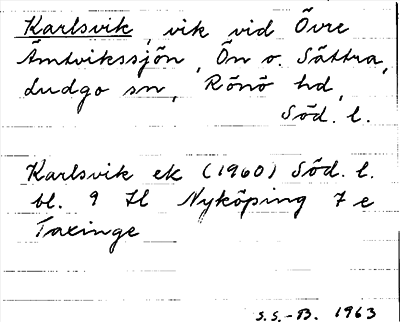 Karlsvik, vik vid Övre
Ämtvikssjön, Ön o. Sättra,
Ludgo sn, Rönö hd,
Söd. l.
Karlsvik ek (1960) Söd. l.
bl. 9 H Nyköping 7 e
Taxinge
S.S.-B. 1963